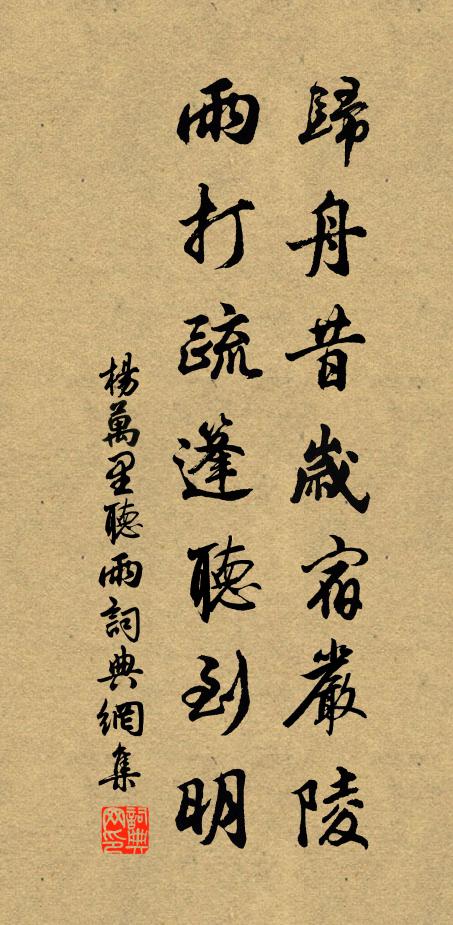 歸舟昔歲宿嚴陵
雨打疏篷聽到明
楊萬里聽雨詞典網集
詞典網印